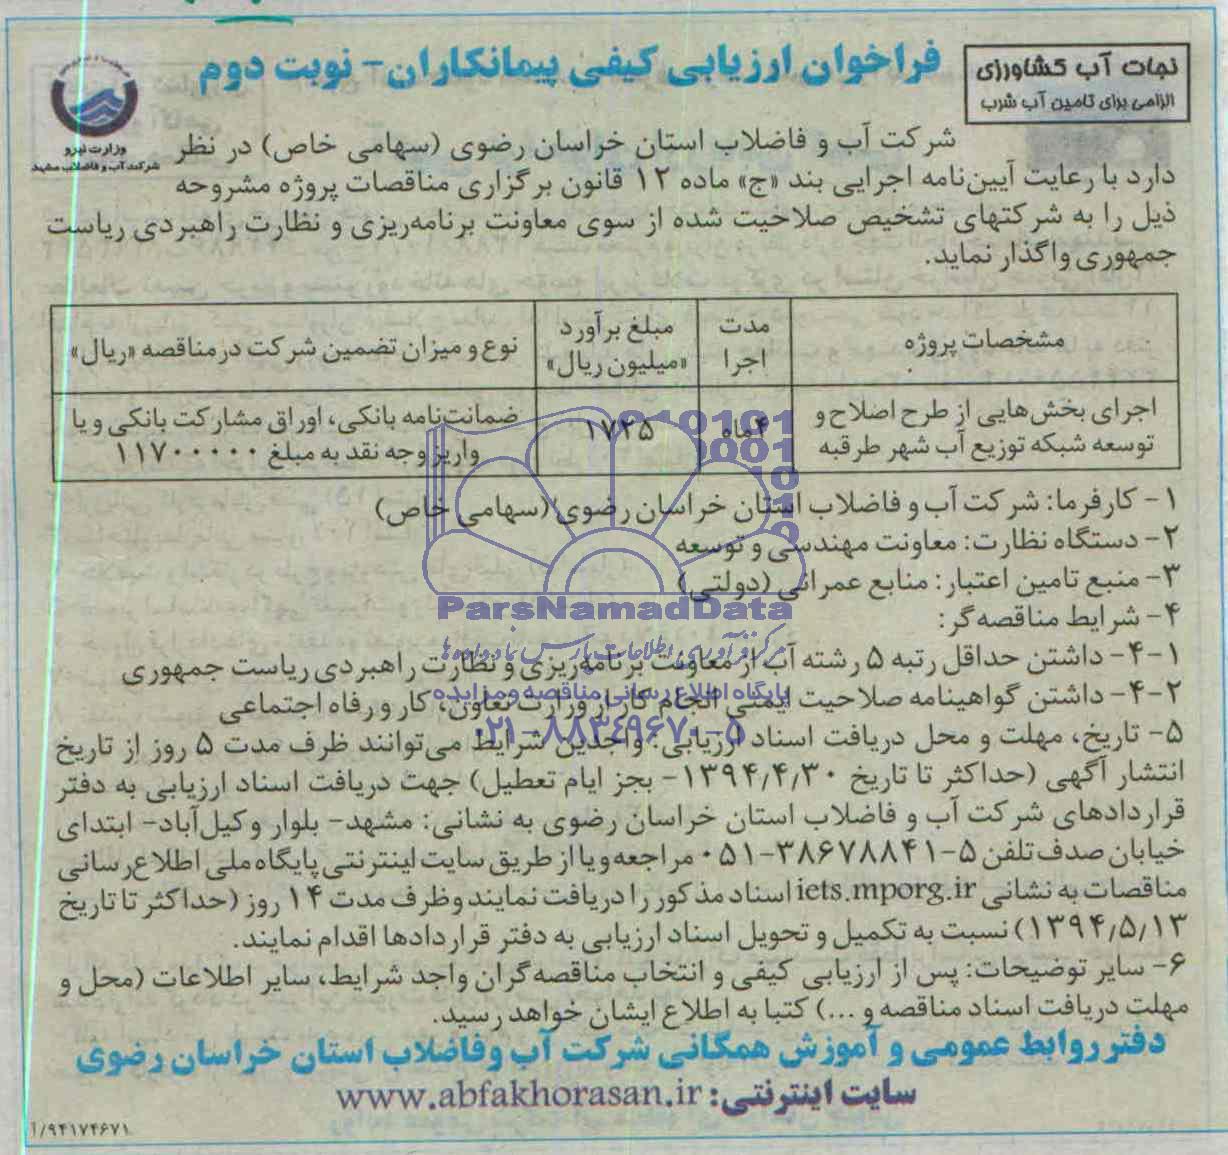 نجات آب کشاورزی
الزامی برای تامین آب شرب
فراخوان ارزیابی کیفی پیمانکاران- نوبت دوم
وزارت نیرو
شرکت آب و فاضلاب مشهد
شرکت آب و فاضلاب استان خراسان رضوی (سهامی خاص) در نظر
دارد با رعایت آیین‌نامه اجرایی بند «ج» ماده ۱۲ قانون برگزاری مناقصات پروژه مشروحه
ذیل را به شرکتهای تشخیص صلاحیت شده از سوی معاونت برنامه‌ریزی و نظارت راهبردی ریاست
جمهوری واگذار نماید.
مشخصات پروژه
مدت اجرا
مبلغ برآورد «میلیون ریال»
نوع و میزان تضمین شرکت در مناقصه «ریال»
اجرای بخش‌هایی از طرح اصلاح و
توسعه شبکه توزیع آب شهر طرقبه
۴ماه
ضمانت‌نامه بانکی، اوراق مشارکت بانکی و یا
واریز وجه نقد به مبلغ ۱۱۷۰۰۰۰۰
۱- کارفرما: شرکت آب و فاضلاب استان خراسان رضوی (سهامی خاص)
۲- دستگاه نظارت: معاونت مهندسی و توسعه
۳- منبع تامین اعتبار: منابع عمرانی (دولتی)
ParsNamadData
۴- شرایط مناقصه‌گر:
مرکز فرآوری اطلاعات پارس نماد داده‌ها
۴-۱- داشتن حداقل رتبه ۵ رشته آب از معاونت برنامه‌ریزی و نظارت راهبردی ریاست جمهوری
پایگاه اطلاع رسانی مناقصه و مزایده
۴-۲- داشتن گواهینامه صلاحیت ایمنی انجام کار از وزارت تعاون، کار و رفاه اجتماعی
۰۲۱-۸۸۳۴۹۶۷۰-۵
۵- تاریخ، مهلت و محل دریافت اسناد ارزیابی: واجدین شرایط می‌توانند ظرف مدت ۵ روز از تاریخ
انتشار آگهی (حداکثر تا تاریخ ۱۳۹۴/۴/۳۰- بجز ایام تعطیل) جهت دریافت اسناد ارزیابی به دفتر
قراردادهای شرکت آب و فاضلاب استان خراسان رضوی به نشانی: مشهد- بلوار وکیل‌آباد- ابتدای
خیابان صدف تلفن ۵-۳۸۶۷۸۸۴۱-۰۵۱ مراجعه و یا از طریق سایت اینترنتی پایگاه ملی اطلاع‌رسانی
مناقصات به نشانی iets.mporg.ir اسناد مذکور را دریافت نمایند و ظرف مدت ۱۴ روز (حداکثر تا تاریخ
۱۳۹۴/۵/۱۳) نسبت به تکمیل و تحویل اسناد ارزیابی به دفتر قراردادها اقدام نمایند.
۶- سایر توضیحات: پس از ارزیابی کیفی و انتخاب مناقصه‌گران واجد شرایط، سایر اطلاعات (محل و
مهلت دریافت اسناد مناقصه و ...) کتبا به اطلاع ایشان خواهد رسید.
دفتر روابط عمومی و آموزش همگانی شرکت آب و فاضلاب استان خراسان رضوی
سایت اینترنتی: www.abfakhorasan.ir
۹۴۱۷۴۶۷۱/آ